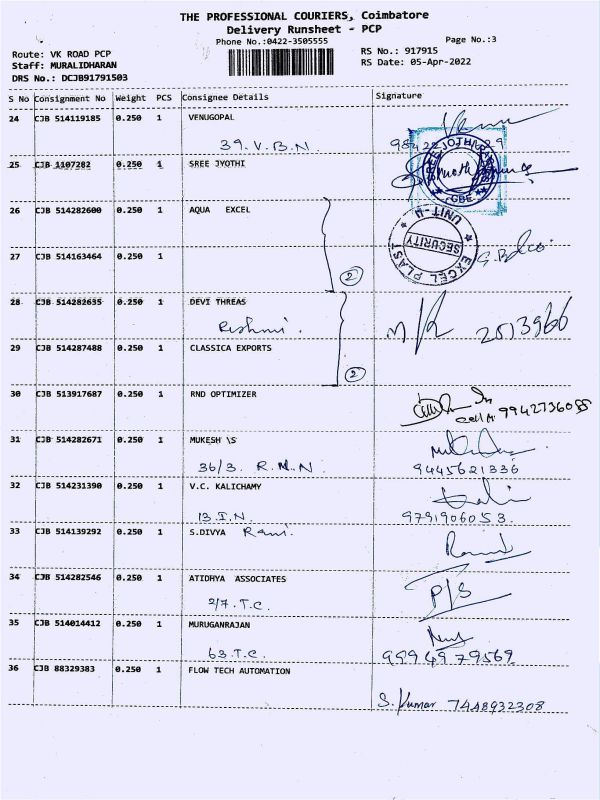 THE PROFESSIONAL COURIERS, Coimbatore
Delivery Runsheet - PCP
Phone No.:0422-3505555
Page No.:3
Route: VK ROAD PCP
RS No.: 917915
Staff: MURALIDHARAN
RS Date: 05-Apr-2022
DRS No.: DCJB91791503
S No Consignment No Weight PCS Consignee Details Signature
24 CJB 514119185 0.250 1 VENUGOPAL
39. V.B.N.
25 CJB 1107282 0.250 1 SREE JYOTHI
CBE
26 CJB 514282600 0.250 1 AQUA EXCEL
UNIT-II
SECURITY
EXCEL PLAST
27 CJB 514163464 0.250 1
2
28 CJB 514282635 0.250 1 DEVI THREAS
Reshmi.
2513966
29 CJB 514287488 0.250 1 CLASSICA EXPORTS
2
30 CJB 513917687 0.250 1 RND OPTIMIZER
31 CJB 514282671 0.250 1 MUKESH \S
36/3. R.M.N.
9445621336
32 CJB 514231390 0.250 1 V.C. KALICHAMY
13.I.N.
9791906053.
33 CJB 514139292 0.250 1 S.DIVYA Rani.
34 CJB 514282546 0.250 1 ATIDHYA ASSOCIATES
2/7. T.C.
P/S
35 CJB 514014412 0.250 1 MURUGANRAJAN
63. T.C.
9994979569
36 CJB 88329383 0.250 1 FLOW TECH AUTOMATION
S. Kumar 7448932308